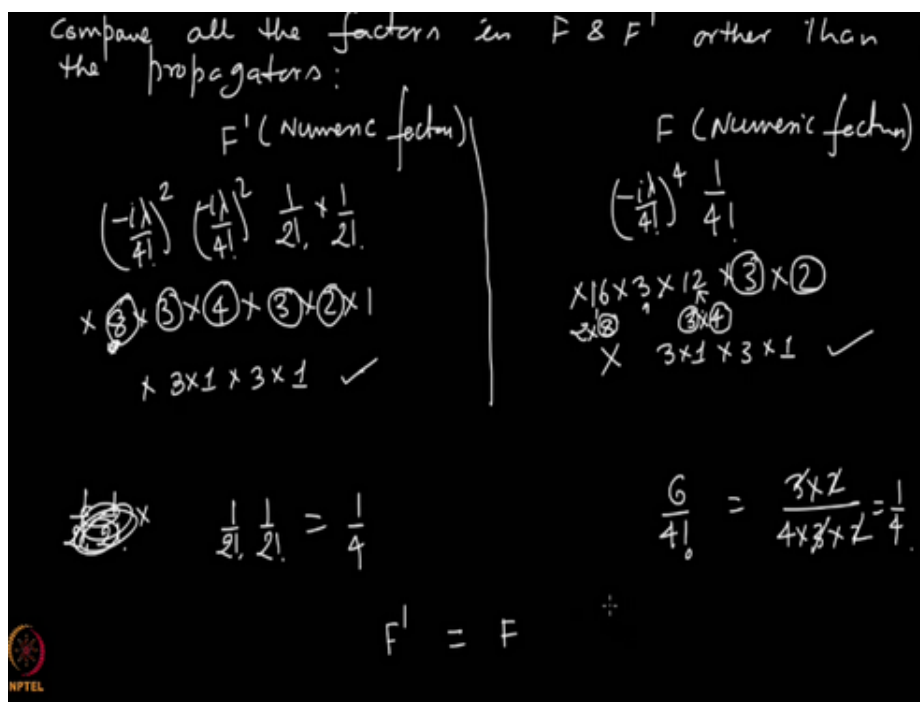 Compare all the factors in F & F' orther than
the propagators:
F' (Numeric fector)
(-iλ/4!)^2 (-iλ/4!)^2 1/2! × 1/2!
× 8 × 3 × 4 × 3 × 2 × 1
× 3×1 × 3×1 ✓
F (Numeric fectors)
(-iλ/4!)^4 1/4!
×16×3×12×3×2
2×8 3×4
× 3×1×3×1 ✓
× 1/2! 1/2! = 1/4
6/4! = 3×2/4×3×2 = 1/4.
F' = F
NPTEL